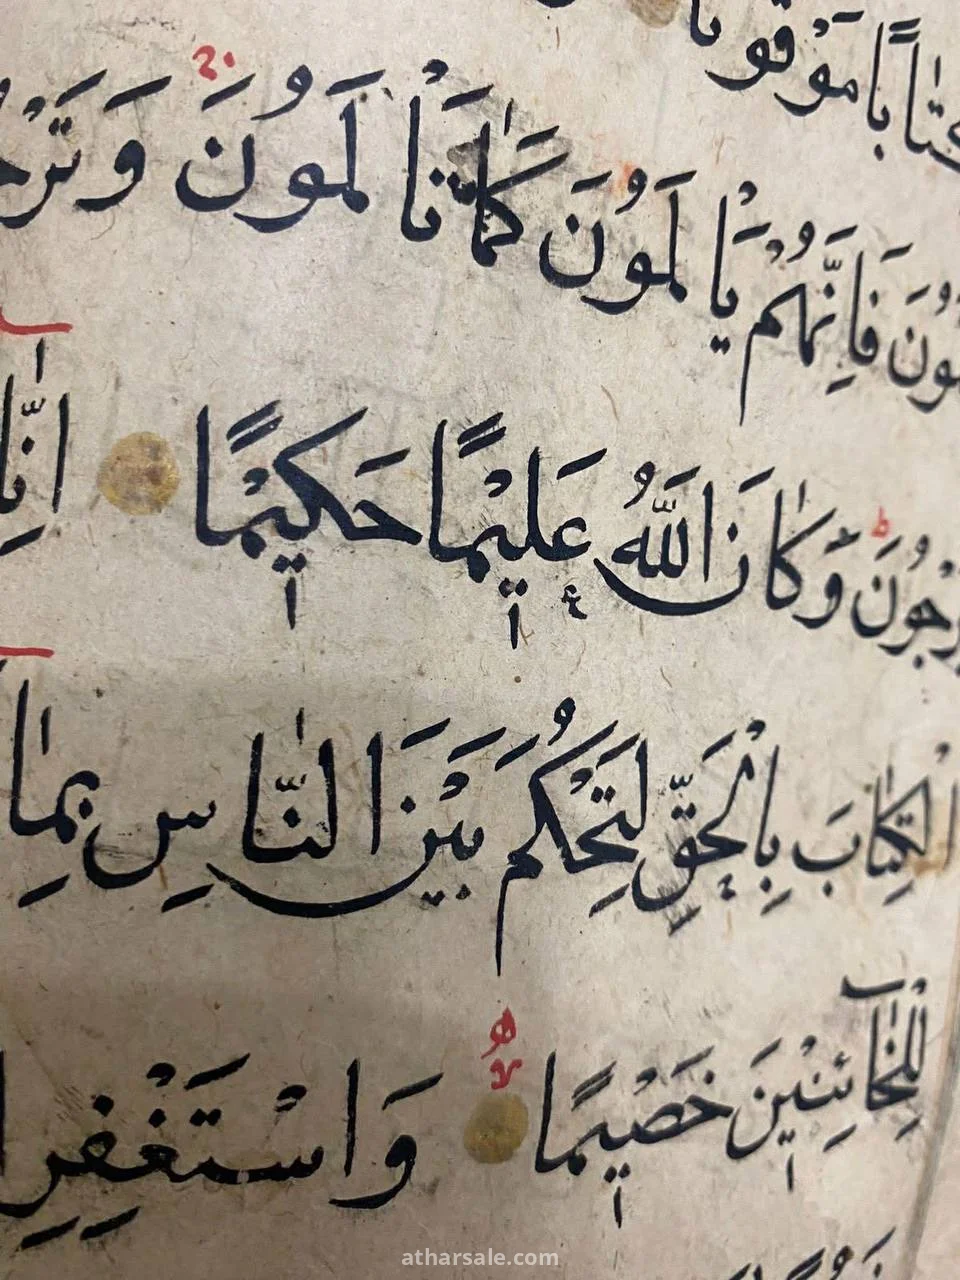 كِتَاباً مَوْقُوتاً
فَاِنَّهُمْ يَاْلَمُونَ كَمَا تَاْلَمُونَ وَتَرْجُ
يَرْجُونَ وَكَانَ اللّٰهُ عَلِيْمًا حَكِيْمًا اِنَّا
الْكِتَابَ بِالْحَقِّ لِتَحْكُمَ بَيْنَ النَّاسِ بِمَا
لِلْخَآئِنِيْنَ خَصِيمًا وَاسْتَغْفِرِ
atharsale.com